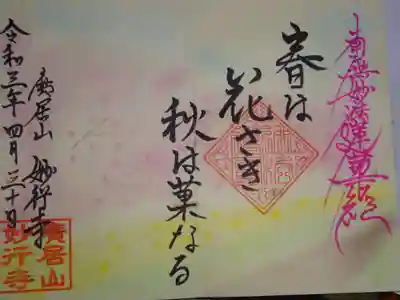 南無妙法蓮華経
春は
花さき
秋は菓なる
廣居山 妙行寺
令和三年四月三十日
廣居山
妙行寺